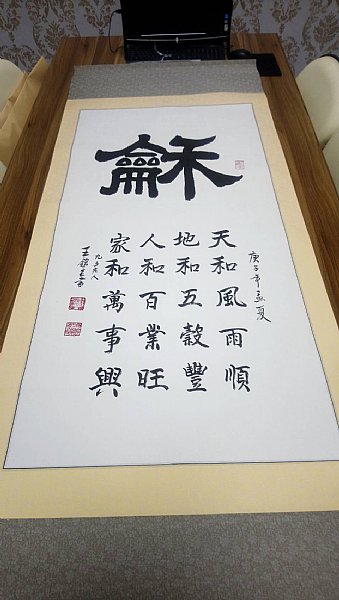 龢
庚子年孟夏
天和風雨順
地和五穀豐
人和百業旺
家和萬事興
九五老人